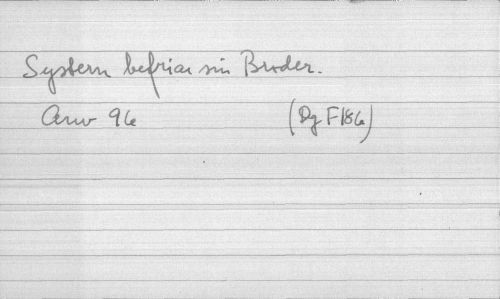 Systern befriar sin Broder.
Arw 96 (Dg F 186)